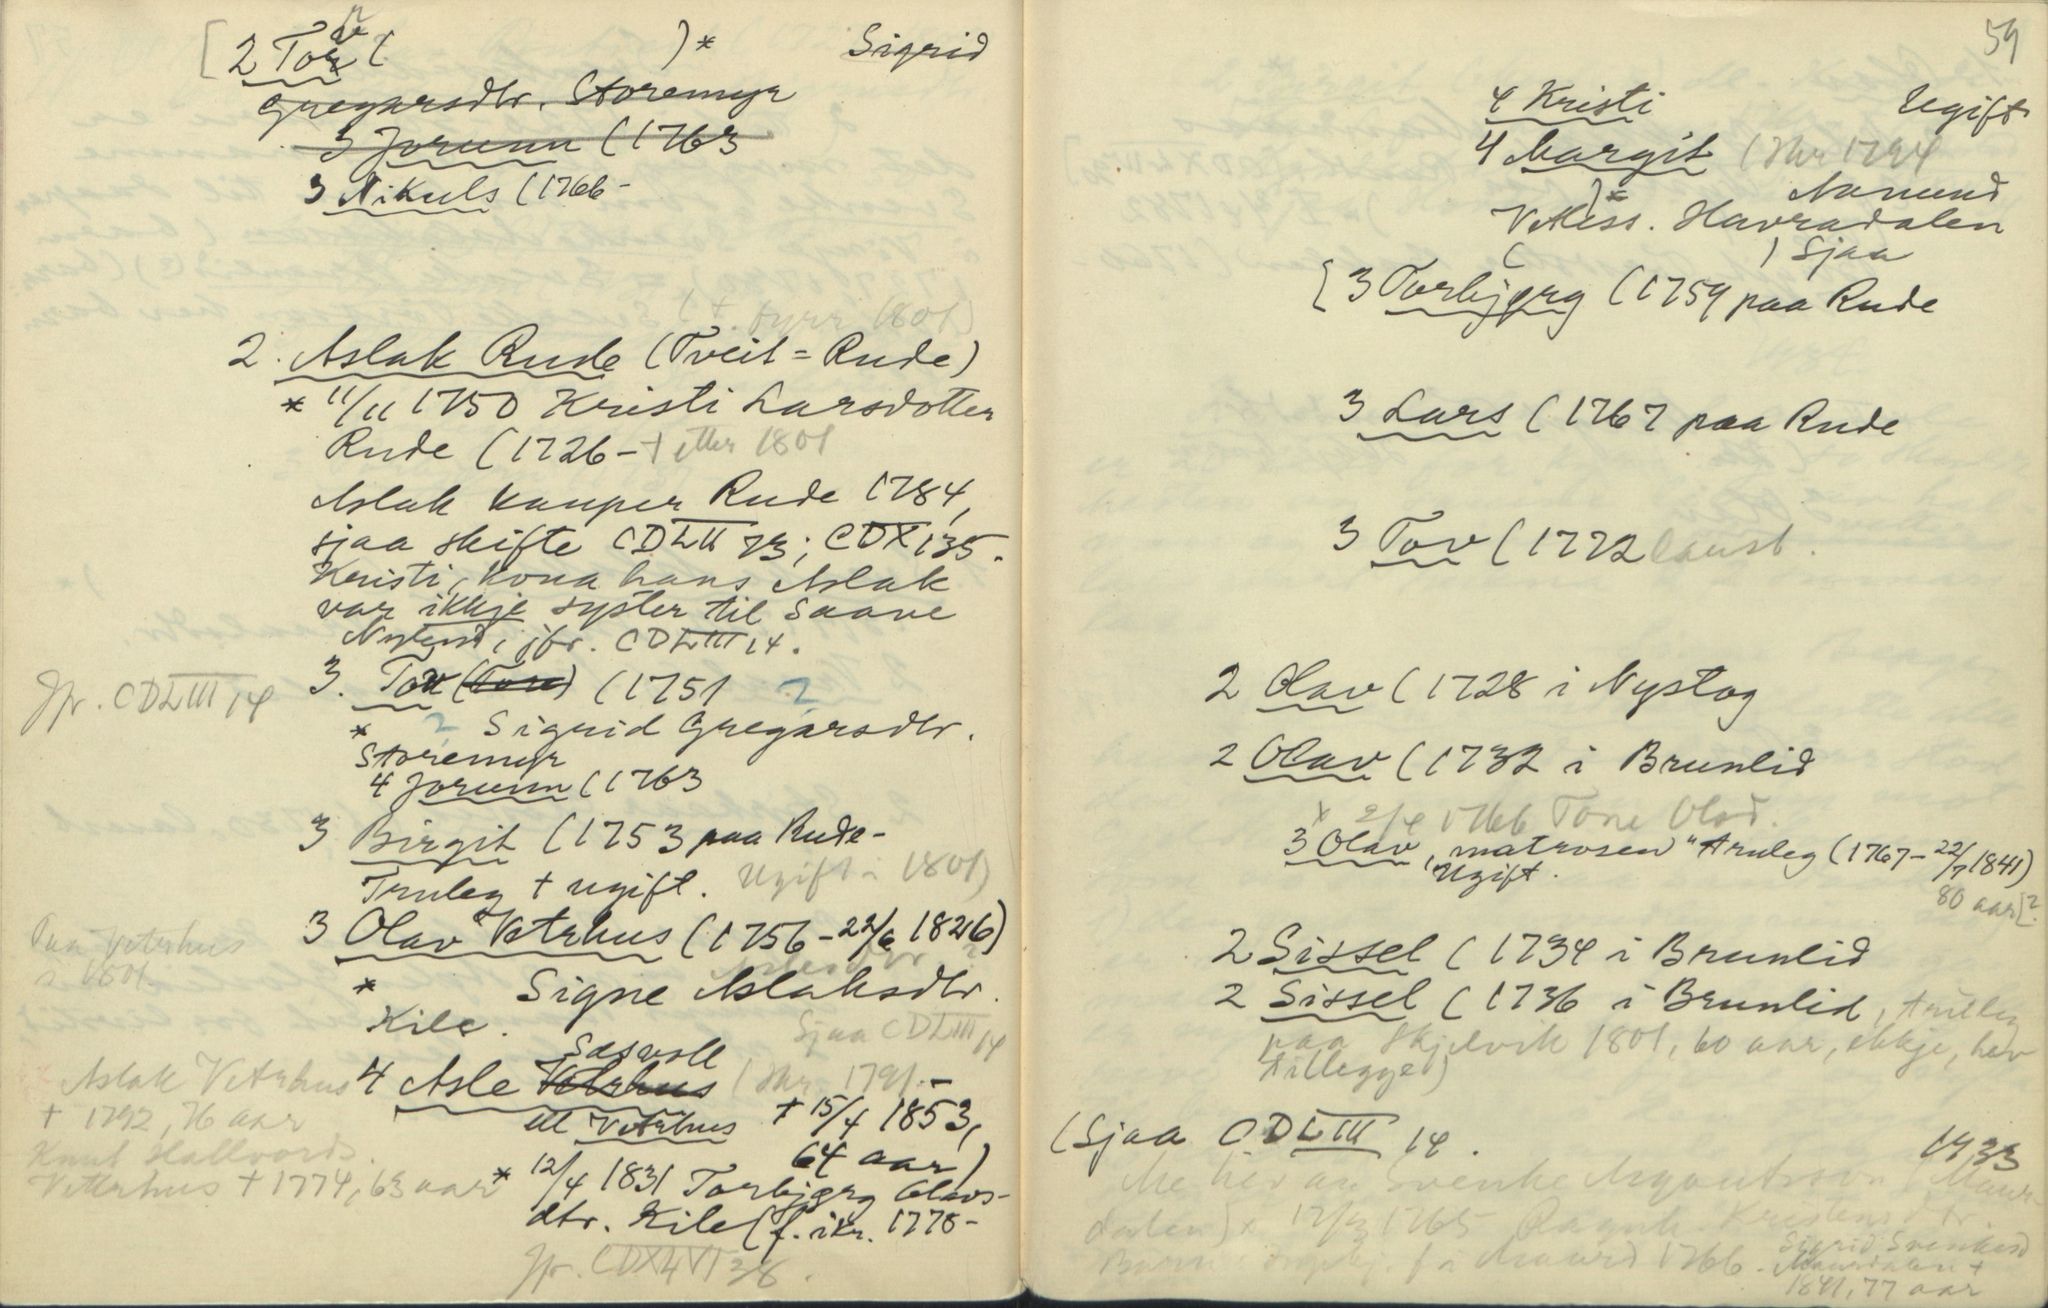 [2 Tov ( )* Sigrid
Gregarsdtr. Storemyr
3 Jorunn (1763
3 Nikuls (1766-
(+ fyrr 1801)
2. Aslak Rude (Tveit = Rude)
* 11/11 1750 Kristi Larsdotter
Rude (1726 - + etter 1801
Aslak kauper Rude 1784,
sjaa skifte CDLII 73; CDX 135.
Kristi, kona hans Aslak
var ikkje syster til Saave
jfr. CDLIII 14.
Jfr. CDLIII 14
3. Tov (Tore) (1751 ?
* ? Sigrid Gregarsdtr.
Storemyr
4 Jorunn (1763
3 Birgit (1753 paa Rude-
Truleg + ugift. Ugift i 1801)
3 Olav Vetrhus (1756 - 22/6 1826)
Paa Vetrhus
i 1801.
* Signe Aslaksdtr.
Kile. Sjaa CDLIII 14
Sasvoll
4 Asle Vetrhus (Ikr. 1791 -
Aslak Vetrhus
+ 1792, 76 aar
Knut Hallvords.
Vetterhus + 1774, 63 aar
ell Vetrhus + 15/4 1853,
64 aar)
* 12/4 1831 Torbjørg Olavs-
dtr. Kile (f. ikr. 1778-
Jfr. CDXLVI 38.
59
4 Kristi Ugift
4 Margit (Ikr 1794
)* Aamund
Vetless. Havradalen
( ) Sjaa
[3 Torbjørg (1759 paa Rude
3 Lars (1767 paa Rude
3 Tov (1772 laust.
2 Olav (1728 i Nystog
2 Olav (1732 i Brunlid
x 2/4 1766 Tone Olsd.
3 Olav, "matrosen" Truleg (1767 - 22/7 1841)
Ugift. 80 aar[?
2 Sissel (1734 i Brunlid
2 Sissel (1736 i Brunlid, truleg
paa Skjelvik 1801, 60 aar, ekkje, hev
tillegge)
(Sjaa CDLIII 14. 1933
Me hev an Svenke (Maur-
dalen) x 1765 Kristensdtr.
Born: 1766 - Sigrid Svenkesd
Maurdalen +
1841, 77 aar